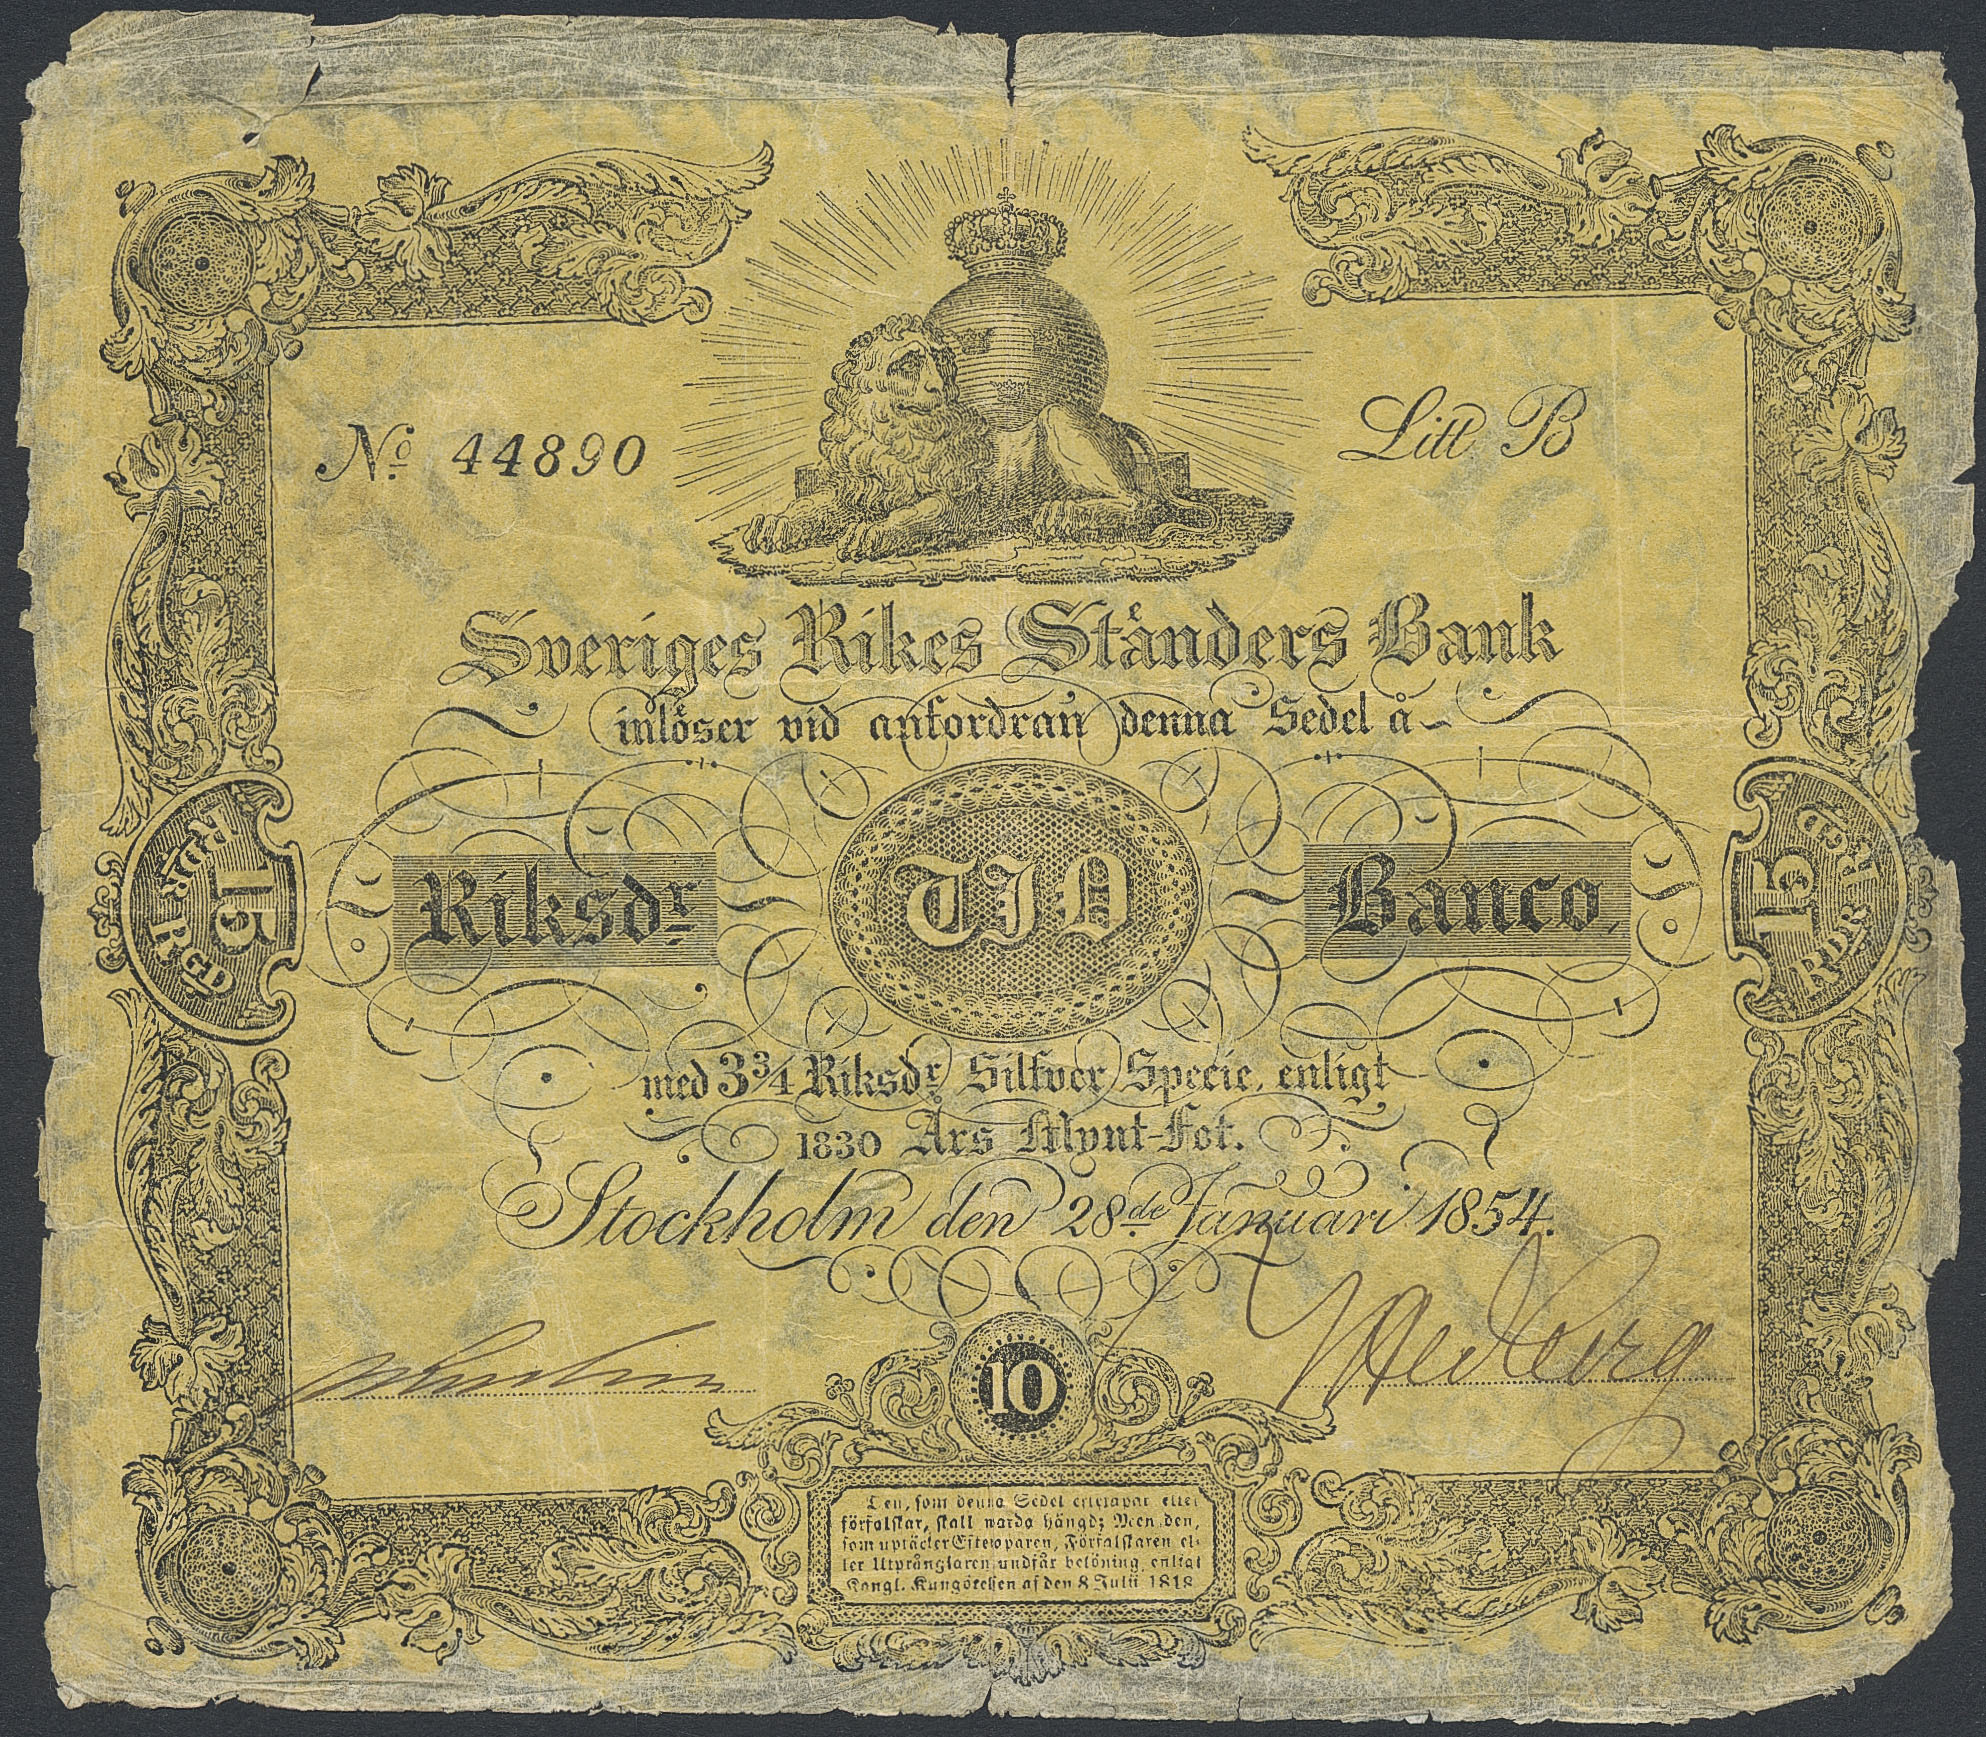 No. 44890
Litt B
Sveriges Rikes Ständers Bank
inlöser vid anfordran denna Sedel å
Riksdr TIO Banco,
15 RDR RGD
15 RDR RGD
med 3 3/4 Riksdr Silfver Specie, enligt
1830 Års Mynt-Fot.
Stockholm den 28de Januari 1854.
10
Den, som denna Sedel efterapar eller
förfalskar, skall warda hängd; Meen den,
som uptäcker Efteraparen, Förfalskaren el-
ler Utprånglaren, undfår belöning enligt
Kongl. Kungörelsen af den 8 Julii 1818